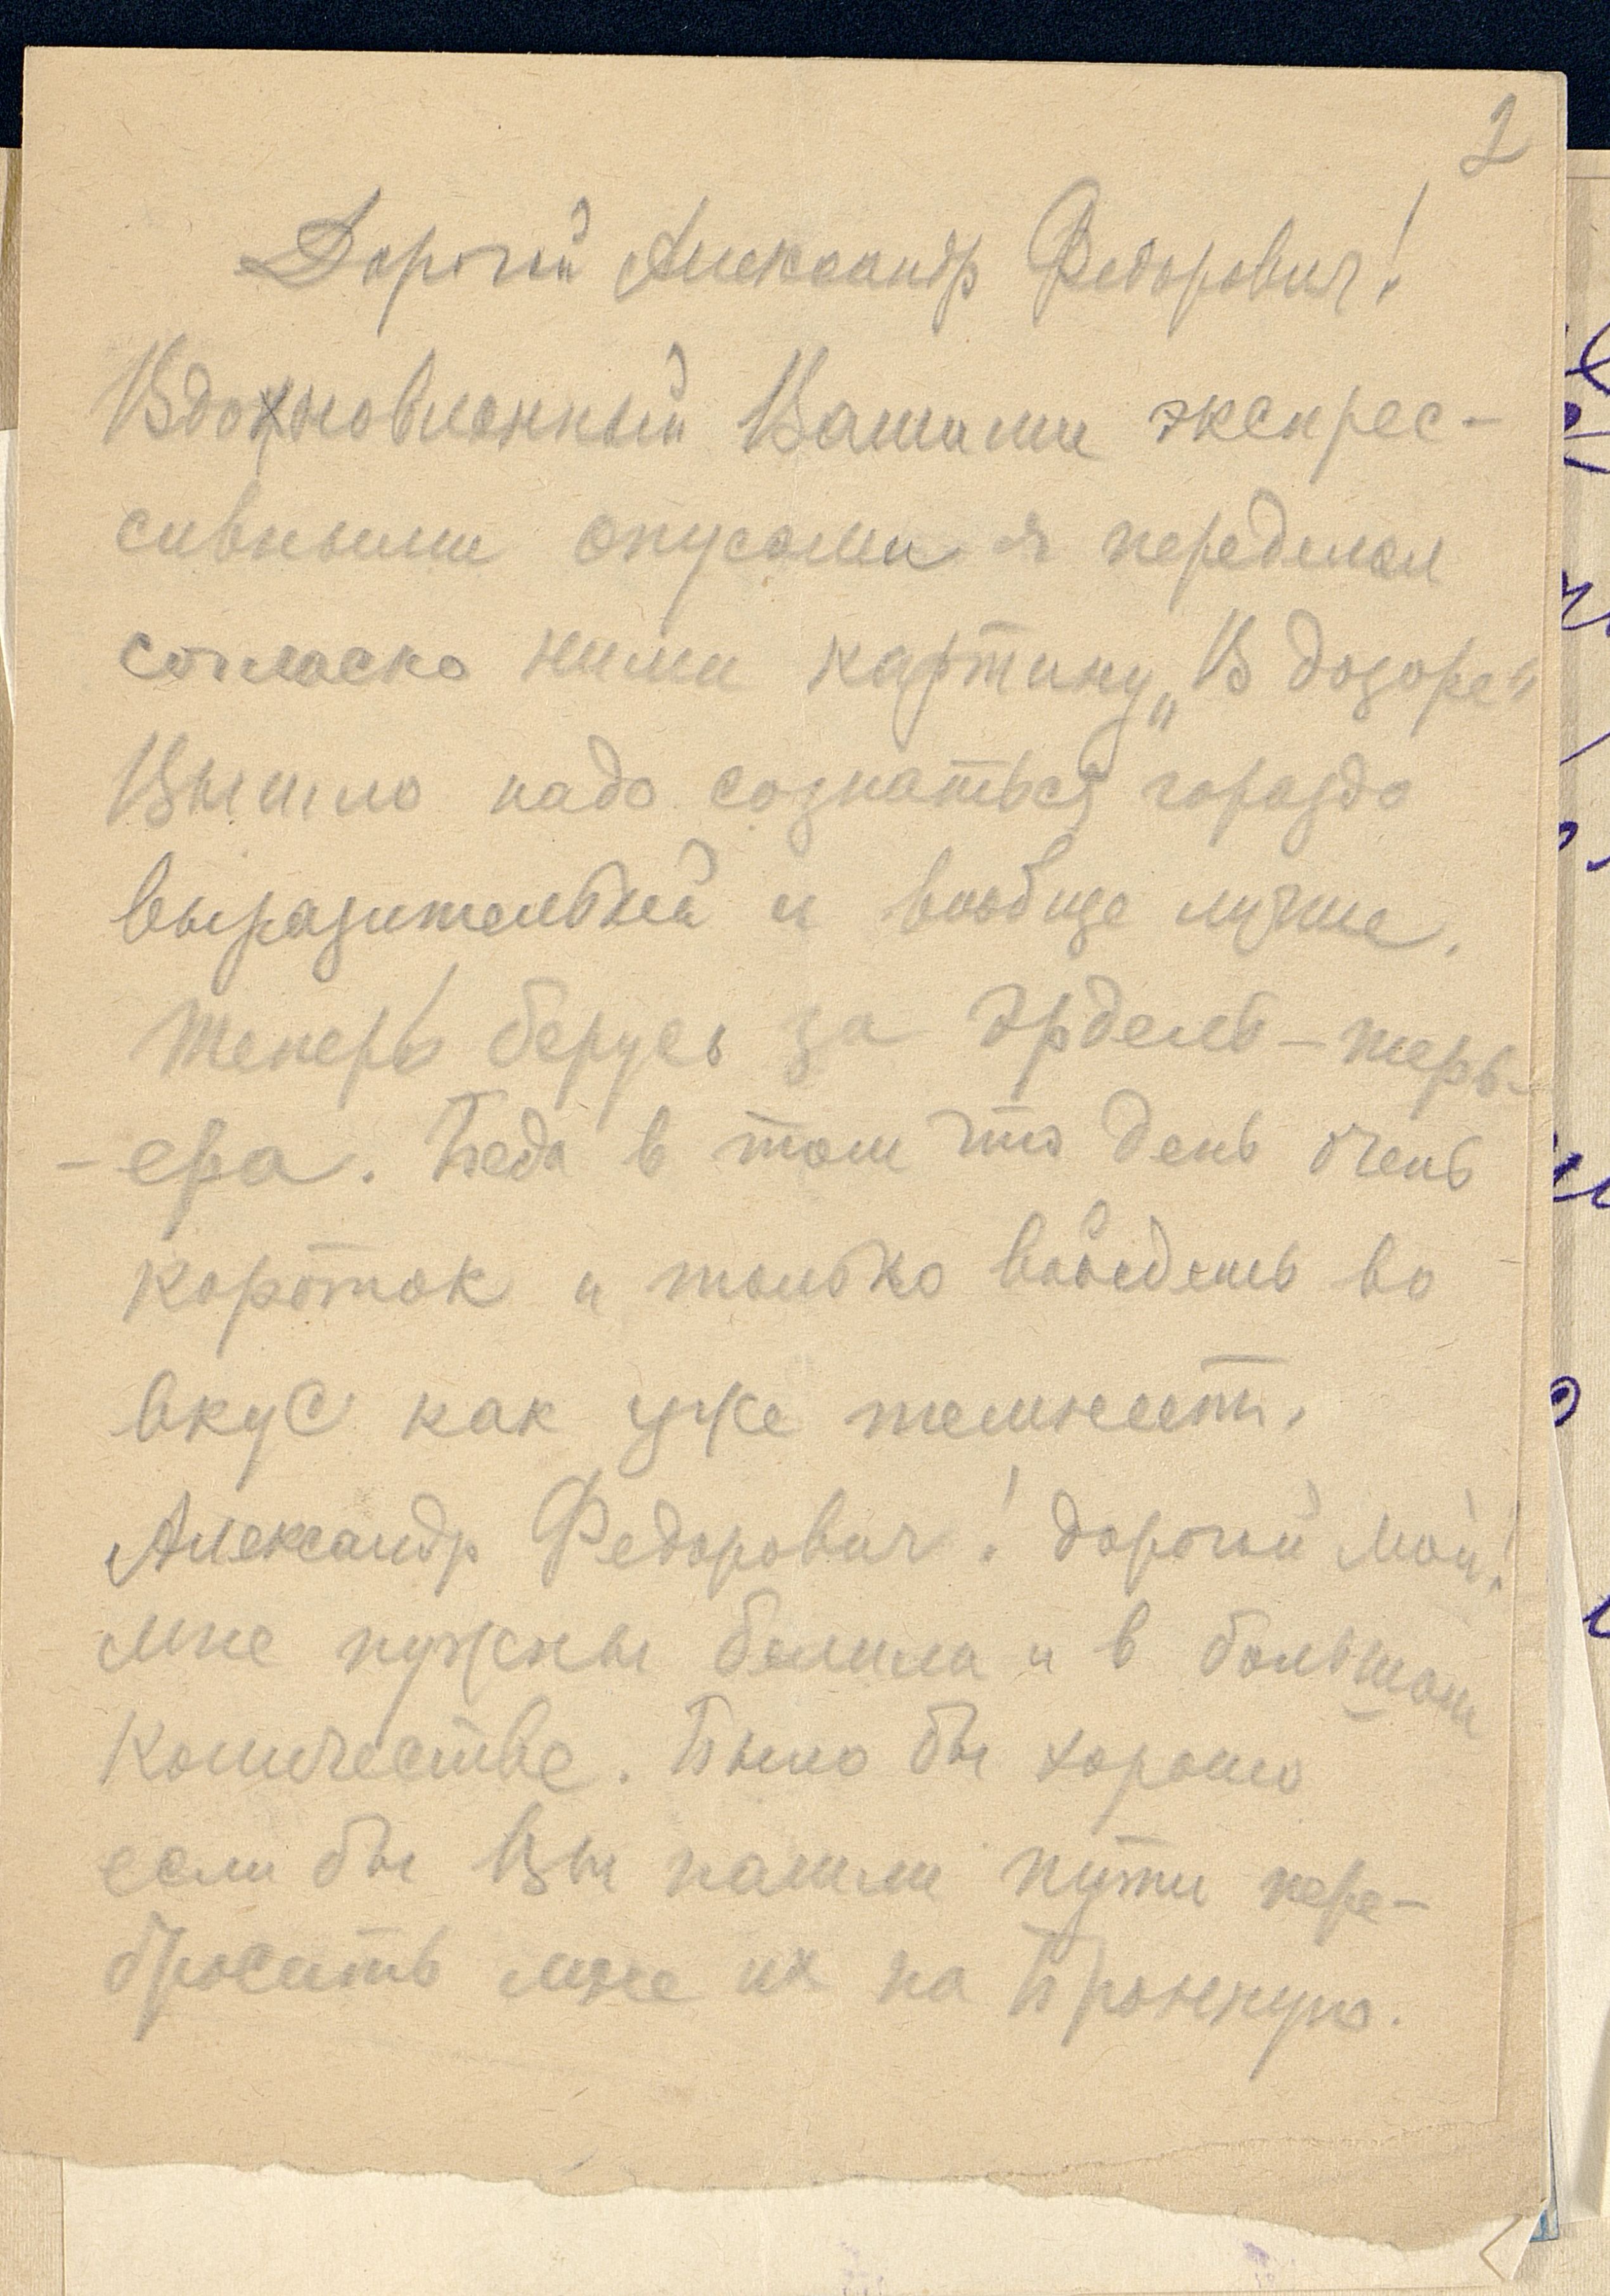 2
Дорогой Александр Федорович!
Вдохновленный Вашими экспрес-
сивными опусами я переделал
согласно ними картину „В дозоре"
Вышло надо сознаться гораздо
выразительней и вообще лучше.
Теперь берусь за Эрдель-терь-
-ера. Беда в том что день очень
короток и только войдешь во
вкус как уже темнеет.
Александр Федорович! дорогой мой!
мне нужны белила и в большом
количестве. Было бы хорошо
если бы Вы нашли пути пере-
бросить мне их на Бронную.